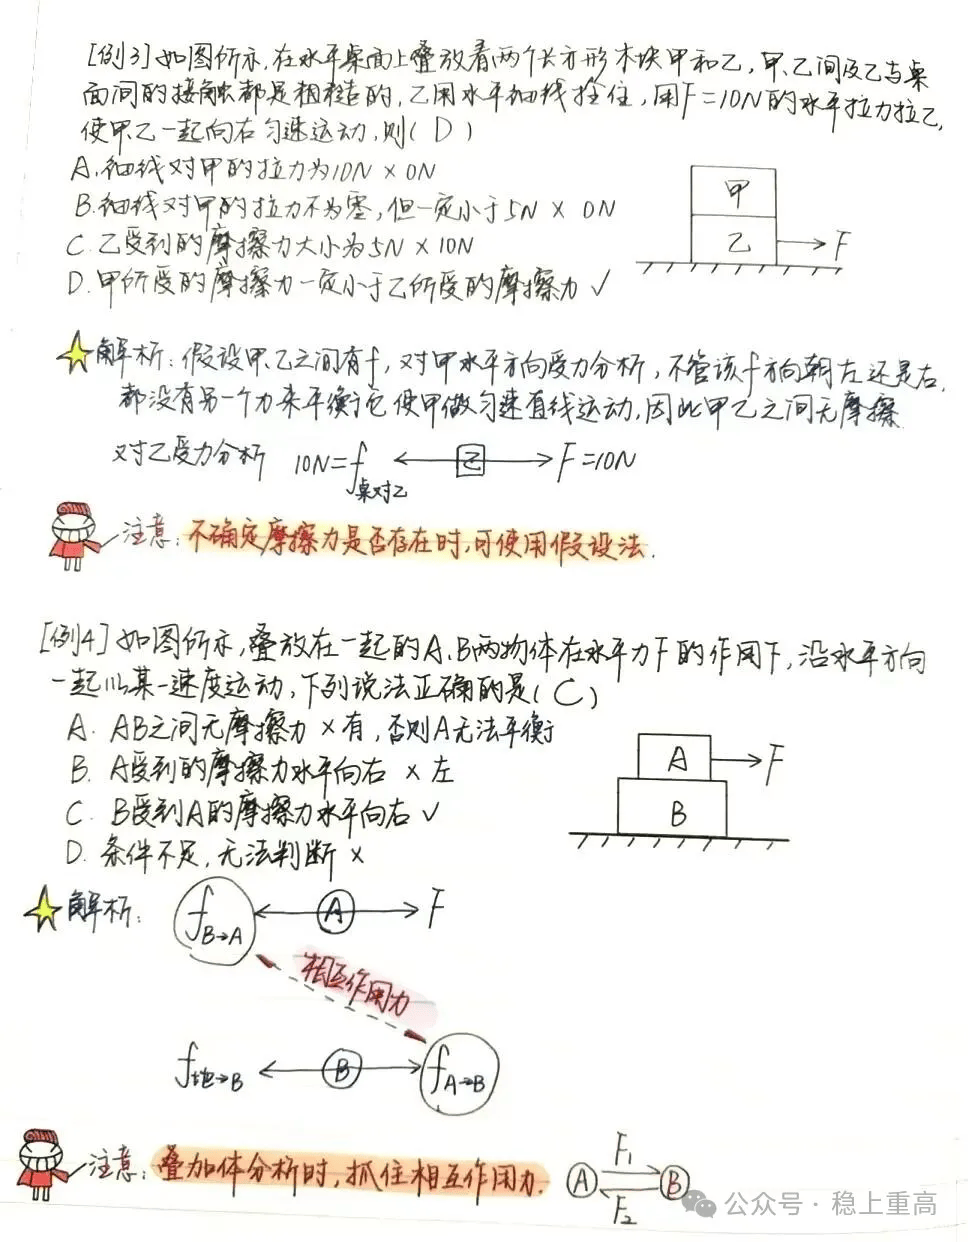 [例3] 如图所示,在水平桌面上叠放着两个长方形木块甲和乙,甲、乙间及乙与桌
面间的接触都是粗糙的,乙用水平细线拴住,用F=10N的水平拉力拉乙,
使甲、乙一起向右匀速运动,则( D )
A.细线对甲的拉力为10N × 0N
B.细线对甲的拉力不为零,但一定小于5N × 0N
C.乙受到的摩擦力大小为5N × 10N
D.甲所受的摩擦力一定小于乙所受的摩擦力 √
甲
乙
F
解析:假设甲、乙之间有f,对甲水平方向受力分析,不管该f方向朝左还是右,
都没有另一个力来平衡它使甲做匀速直线运动,因此甲乙之间无摩擦.
对乙受力分析 10N=f桌对乙 乙 F=10N
注意:不确定摩擦力是否存在时,可使用假设法.
[例4] 如图所示,叠放在一起的A、B两物体在水平力F的作用下,沿水平方向
一起以某一速度运动,下列说法正确的是( C )
A. AB之间无摩擦力 × 有,否则A无法平衡
B. A受到的摩擦力水平向右 × 左
C. B受到A的摩擦力水平向右 √
D. 条件不足,无法判断 ×
A
F
B
解析: fB→A A F
相互作用力
f地→B B fA→B
注意:叠加体分析时,抓住相互作用力.
F1
A B
F2
公众号·稳上重高